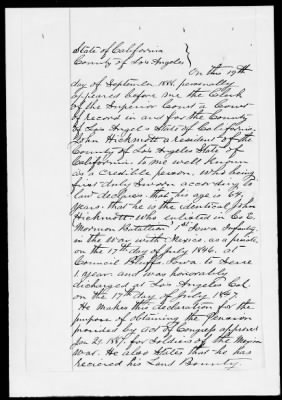 State of California
County of Los Angeles
On this 19th
day of September 1887, personally
appeared before me the Clerk
of the Superior Court a Court
of record in and for the County
of Los Angeles State of California,
John Hickmott a resident of the
County of Los Angeles State of
California to me well known
as a credible person. Who being
first duly sworn according to
law declares that his age is
years, that he is the identical John
Hickmott who enlisted in Co E,
Mormon Battalion 1st Iowa Infantry
in the War with Mexico, as a private,
on the 17th day of July 1846, at
Council Bluffs Iowa to serve
1 year and was honorably
discharged at Los Angeles Cal
on the 17th day of July 1847
He makes this declaration for the
purpose of obtaining the Pension
provided by act of Congress approved
Jan 29. 1887, for Soldiers of the Mexican
War. He also states that he has
received his Land Bounty.